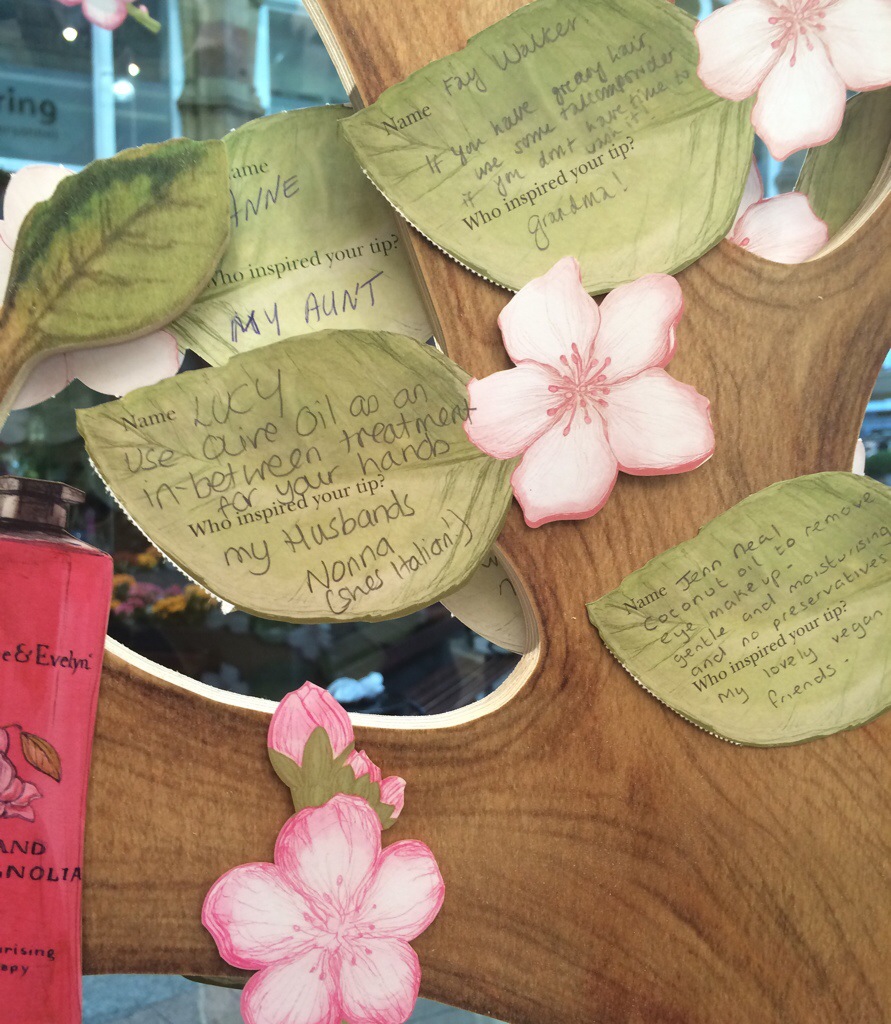 ring
Name Fay Walker
If you have greasy hair,
use some talcum powder
if you dont have time to
wash it!
Who inspired your tip?
grandma!
ame
ANNE
Who inspired your tip?
MY AUNT
Name LUCY
use Olive Oil as an
in-between treatment
for your hands
Who inspired your tip?
my Husbands
Nonna
(shes Italian!)
Name Jenn Neal
Coconut oil to remove
eye makeup-
gentle and moisturising
and no preservatives
Who inspired your tip?
My lovely vegan
friends.
e & Evelyn
AND
GNOLIA
urising
apy